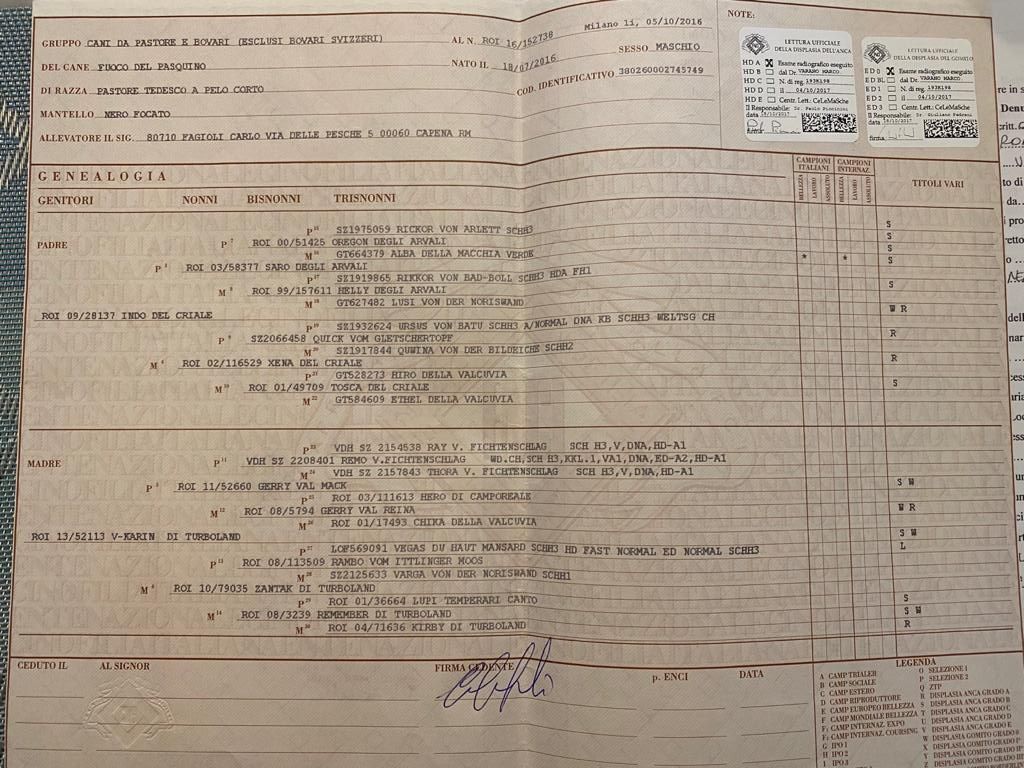 Milano li, 05/10/2016
GRUPPO CANI DA PASTORE E BOVARI (ESCLUSI BOVARI SVIZZERI) AL N. ROI 16/152738
DEL CANE FUOCO DEL PASQUINO NATO IL 18/07/2016 SESSO MASCHIO
DI RAZZA PASTORE TEDESCO A PELO CORTO COD. IDENTIFICATIVO 380260002745749
MANTELLO NERO FOCATO
ALLEVATORE IL SIG. 80710 FAGIOLI CARLO VIA DELLE PESCHE 5 00060 CAPENA RM
NOTE:
LETTURA UFFICIALE
DELLA DISPLASIA DELL'ANCA
HD A X Esame radiografico eseguito
HD B dal Dr. VARANO MARCO
HD C N. di reg. 193R198
HD D il 04/10/2017
HD E Centr. Lett.: CeLeMaSche
Il Responsabile: Dr. Paolo Piccinini
data
firma
LETTURA UFFICIALE
DELLA DISPLASIA DEL GOMITO
ED 0 X Esame radiografico eseguito
ED BL dal Dr. VARANO MARCO
ED 1 N. di reg. 193R198
ED 2 il 04/10/2017
ED 3 Centr. Lett.: CeLeMaSche
Il Responsabile: Dr. Giuliano Pedrani
data
firma
GENEALOGIA
CAMPIONI ITALIANI CAMPIONI INTERNAZ.
BELLEZZA LAVORO ASSOLUTO BELLEZZA LAVORO ASSOLUTO
TITOLI VARI
GENITORI NONNI BISNONNI TRISNONNI
PADRE
P 15 SZ1975059 RICKOR VON ARLETT SCHH3 S
P 7 ROI 00/51425 OREGON DEGLI ARVALI S
M 16 GT664379 ALBA DELLA MACCHIA VERDE S
P 3 ROI 03/58377 SARO DEGLI ARVALI * * S
P 17 SZ1919865 RIKKOR VON BAD-BOLL SCHH3 HDA FH1
M 8 ROI 99/157611 HELLY DEGLI ARVALI S
M 18 GT627482 LUSI VON DER NORISWAND
ROI 09/28137 INDO DEL CRIALE W R
P 19 SZ1932624 URSUS VON BATU SCHH3 A/NORMAL DNA KB SCHH3 WELTSG CH
P 9 SZ2066458 QUICK VOM GLETSCHERTOPF R
M 20 SZ1917844 QUWINA VON DER BILDEICHE SCHH2
M 4 ROI 02/116529 XENA DEL CRIALE R
P 21 GT528273 HIRO DELLA VALCUVIA
M 10 ROI 01/49709 TOSCA DEL CRIALE S
M 22 GT584609 ETHEL DELLA VALCUVIA
MADRE
P 23 VDH SZ 2154538 RAY V. FICHTENSCHLAG SCH H3,V,DNA,HD-A1
P 11 VDH SZ 2208401 REMO V.FICHTENSCHLAG WD.CH,SCH H3,KKL.1,VA1,DNA,ED-A2,HD-A1
M 24 VDH SZ 2157843 THORA V. FICHTENSCHLAG SCH H3,V,DNA,HD-A1
P 5 ROI 11/52660 GERRY VAL MACK S W
P 25 ROI 03/111613 HERO DI CAMPOREALE
M 12 ROI 08/5794 GERRY VAL REINA W R
M 26 ROI 01/17493 CHIKA DELLA VALCUVIA
ROI 13/52113 V-KARIN DI TURBOLAND S W
P 27 LOF569091 VEGAS DU HAUT MANSARD SCHH3 HD FAST NORMAL ED NORMAL SCHH3 L
P 13 ROI 08/113509 RAMBO VOM ITTLINGER MOOS
M 28 SZ2125633 VARGA VON DER NORISWAND SCHH1
M 6 ROI 10/79035 ZANTAK DI TURBOLAND
P 29 ROI 01/36664 LUPI TEMPERARI CANTO S
M 14 ROI 08/3239 REMEMBER DI TURBOLAND S W
M 30 ROI 04/71636 KIRBY DI TURBOLAND R
CEDUTO IL AL SIGNOR FIRMA CEDENTE p. ENCI DATA
LEGENDA
A CAMP TRIALER
B CAMP SOCIALE
C CAMP ESTERO
D CAMP RIPRODUTTORE
E CAMP EUROPEO BELLEZZA
F CAMP MONDIALE BELLEZZA
CAMP INTERNAZ. EXPO
CAMP INTERNAZ. COURSING
G IPO 1
H IPO 2
I IPO 3
O SELEZIONE 1
P SELEZIONE 2
Q ZTP
R DISPLASIA ANCA GRADO A
S DISPLASIA ANCA GRADO B
T DISPLASIA ANCA GRADO C
U DISPLASIA ANCA GRADO D
V DISPLASIA ANCA GRADO E
W DISPLASIA GOMITO GRADO 0
X DISPLASIA GOMITO GRADO